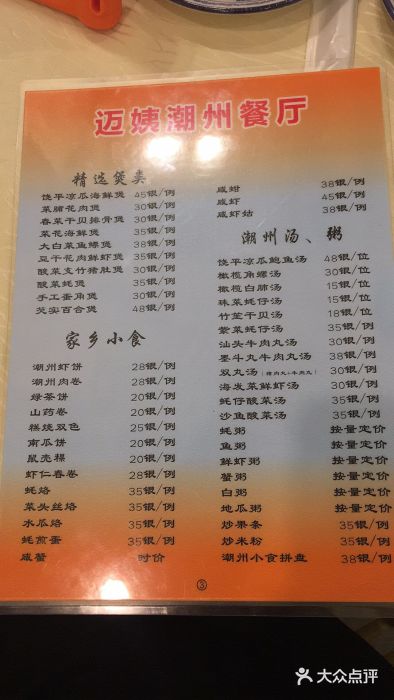 迈姨潮州餐厅
精选煲类
饶平凉瓜海鲜煲 45银/例
菜脯花肉煲 30银/例
春菜干贝排骨煲 35银/例
菜花海鲜煲 35银/例
大白菜鱼鳔煲 38银/例
豆干花肉鲜虾煲 35银/例
酸菜支竹猪肚煲 30银/例
酸菜蚝煲 35银/例
手工蛋角煲 30银/例
芡实百合煲 48银/例
家乡小食
潮州虾饼 28银/例
潮州肉卷 28银/例
绿茶饼 20银/例
山药卷 20银/例
糕烧双色 25银/例
南瓜饼 20银/例
鼠壳粿 20银/例
虾仁春卷 28银/例
蚝烙 35银/例
菜头丝烙 35银/例
水瓜烙 35银/例
蚝煎蛋 35银/例
咸蟹 时价
咸蚶 38银/例
咸虾 45银/例
咸虾姑 38银/例
潮州汤、粥
饶平凉瓜鲍鱼汤 48银/位
橄榄角螺汤 30银/位
橄榄白肺汤 15银/位
珠菜蚝仔汤 15银/位
竹笙干贝汤 18银/位
紫菜蚝仔汤 35银/例
汕头牛肉丸汤 30银/例
墨斗丸牛肉丸汤 38银/例
双丸汤（猪肉丸+牛肉丸） 30银/例
海发菜鲜虾汤 30银/例
蚝仔酸菜汤 35银/例
沙鱼酸菜汤 35银/例
蚝粥 按量定价
鱼粥 按量定价
鲜虾粥 按量定价
蟹粥 按量定价
白粥 按量定价
地瓜粥 按量定价
炒果条 35银/例
炒米粉 35银/例
潮州小食拼盘 38银/例
③
大众点评